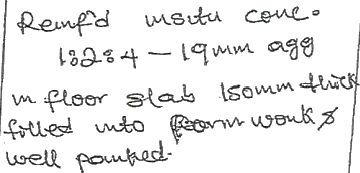 Reinf'd insitu conc.
1:2:4 - 19mm agg
in floor slab 150mm thick
filled into formwork &
well pamked.